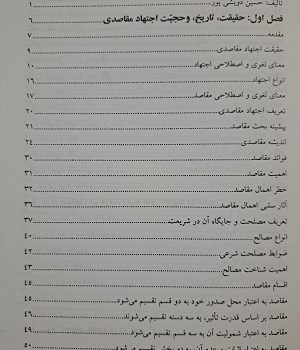 تألیف: حسین درویشی پور ۱
فصل اول: حقیقت، تاریخ، وحجیّت اجتهاد مقاصدی ۶
مقدمه ۷
حقیقت اجتهاد مقاصدی ۹
معنای لغوی و اصطلاحی اجتهاد ۱۰
انواع اجتهاد ۱۶
معنای لغوی و اصطلاحی مقاصد ۱۷
تعریف اجتهاد مقاصدی ۲۰
پیشینه بحث مقاصد ۲۱
اندیشه مقاصدی ۲۴
فوائد مقاصد ۳۰
اهمیت مقاصد ۳۱
خطر اهمال مقاصد ۳۲
آثار سلبی اهمال مقاصد ۳۶
تعریف مصلحت و جایگاه آن در شریعت ۳۷
انواع مصالح ۴۰
ضوابط مصلحت شرعی ۴۲
اهمیت شناخت مصالح ۴۳
اقسام مقاصد ۴۵
مقاصد به اعتبار محل صدور خود به دو قسم تقسیم می‌شود ۴۵
مقاصد بر اساس قدرت تأثیر، به سه دسته تقسیم می‌شوند ۴۶
مقاصد به اعتبار شمولیت آن به سه قسم تقسیم می‌شود ۴۹
مقاصد به اعتبار آن به دو بخش تقسیم می‌شود ۵۰